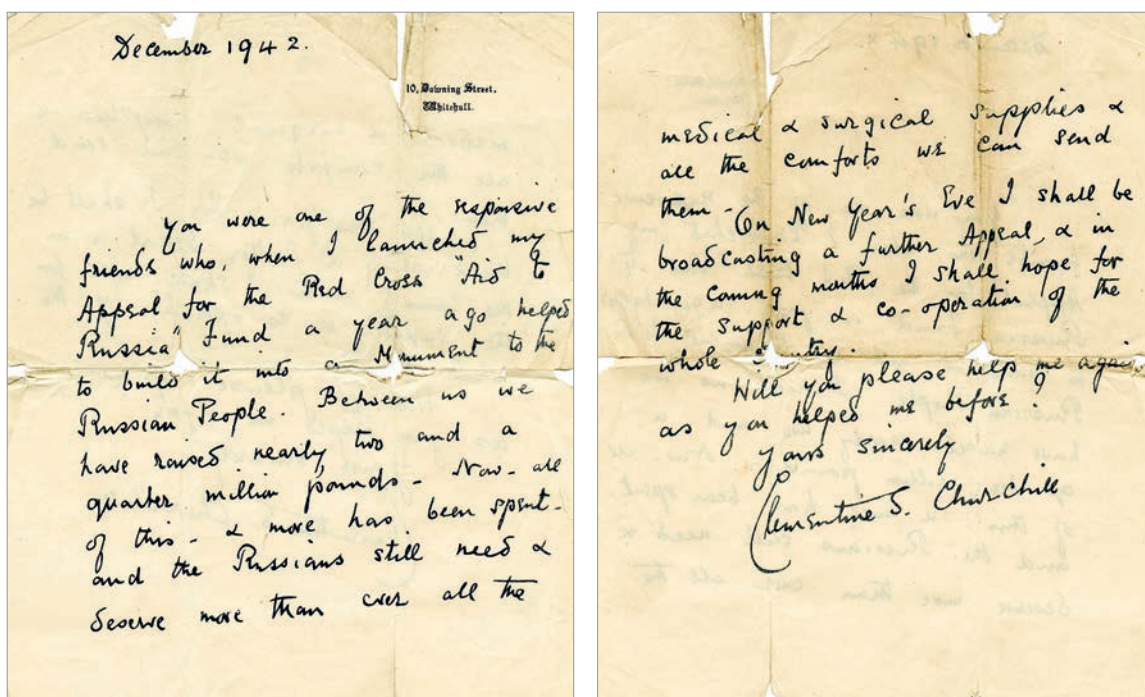 December 1942.
10, Downing Street,
Whitehall.
You were one of the responsive
friends who, when I launched my
Appeal for the Red Cross "Aid to
Russia" Fund a year ago helped
to build it into a Monument to the
Russian People. Between us we
have raised nearly two and a
quarter million pounds - Now - all
of this - & more has been spent -
and the Russians still need &
deserve more than ever all the
medical & surgical supplies &
all the comforts we can send
them - On New Year's Eve I shall be
broadcasting a further Appeal, & in
the coming months I shall hope for
the support & co-operation of the
whole country.
Will you please help me again,
as you helped me before?
yours sincerely
Clementine S. Churchill